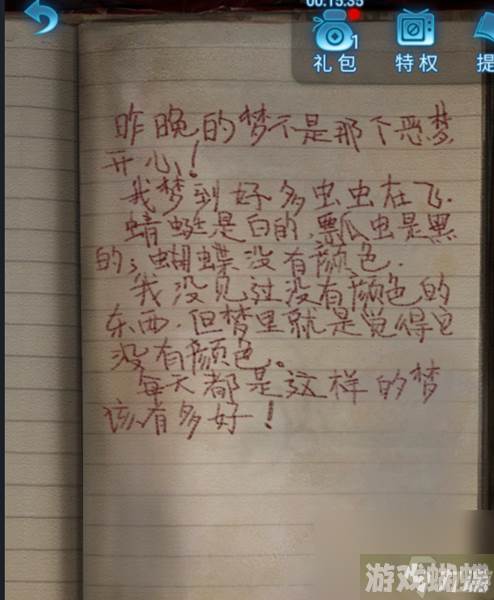 00:15:35
1
礼包
特权
提
昨晚的梦不是那个恶梦
开心！
我梦到好多虫虫在飞.
蜻蜓是白的，瓢虫是黑
的；蝴蝶没有颜色.
我没见过没有颜色的
东西.但梦里就是觉得它
没有颜色。
每天都是这样的梦
该有多好！
游戏蝴蝶